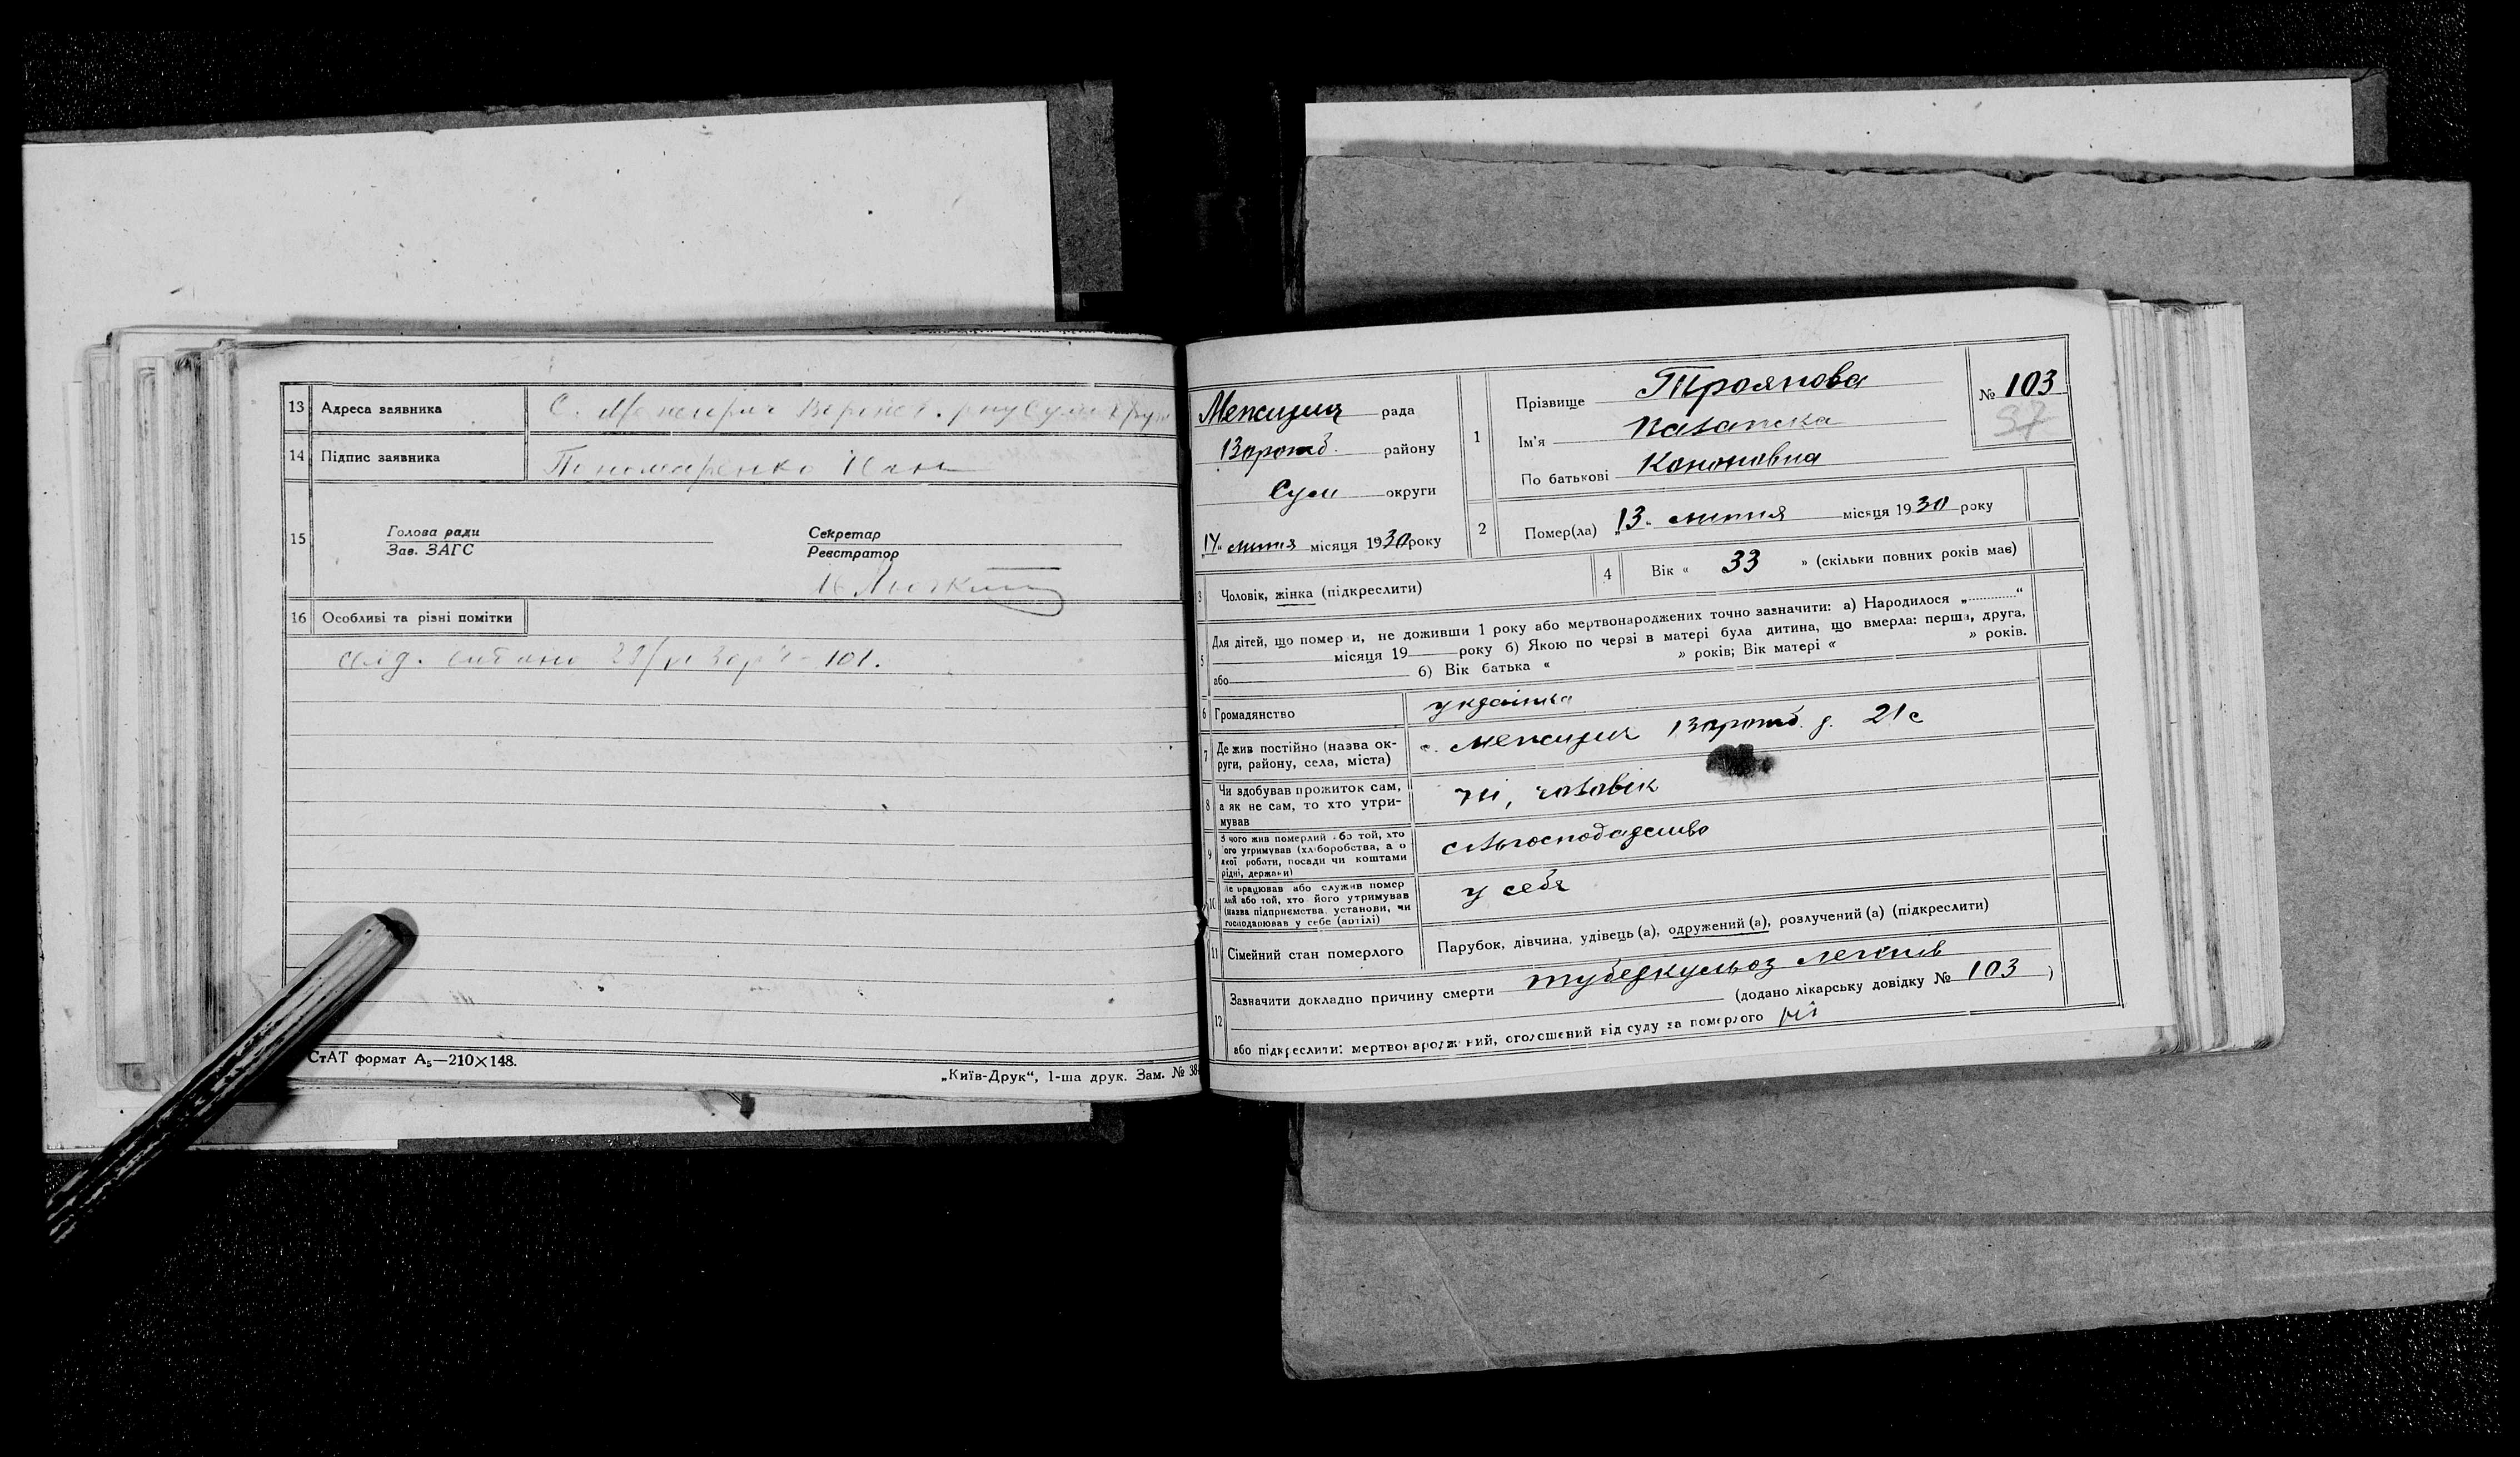 13 Адреса заявника
14 Підпис заявника Пономаренко
15 Голова ради Секретар
Зав. ЗАГС Реєстратор
16 Особливі та різні помітки
101.
СтАТ формат А₅—210×148.
„Київ-Друк“, 1-ша друк. Зам. № 38
рада
району
Сум округи
14 липня місяця 1930 року
1 Прізвище Троянова
Ім'я
По батькові Кононовна
№ 103
37
2 Помер(ла) „13„ липня місяця 1930 року
3 Чоловік, жінка (підкреслити)
4 Вік « 33 » (скільки повних років має)
5 Для дітей, що померли, не доживши 1 року або мертвонароджених точно зазначити: а) Народилося „............“
місяця 19 року б) Якою по черзі в матері була дитина, що вмерла: перша, друга,
або б) Вік батька « » років; Вік матері « » років.
6 Громадянство українка
7 Де жив постійно (назва ок-
руги, району, села, міста)
с. 21 с
8 Чи здобував прожиток сам,
а як не сам, то хто утри-
мував
ні, чоловік
9 З чого жив померлий або той, хто
його утримував (хліборобства, а о
якої роботи, посади чи коштами
рідні, держави)
сільгосподарство
10 Де працював або служив помер
лий або той, хто його утримував
(назва підприємства, установи, чи
господарював у себе (артілі)
у себя
11 Сімейний стан померлого Парубок, дівчина, удівець (а), одружений (а), розлучений (а) (підкреслити)
12 Зазначити докладно причину смерти туберкульоз легенів
(додано лікарську довідку № 103 )
або підкреслити: мертвонароджений, оголошений від суду за померлого ні